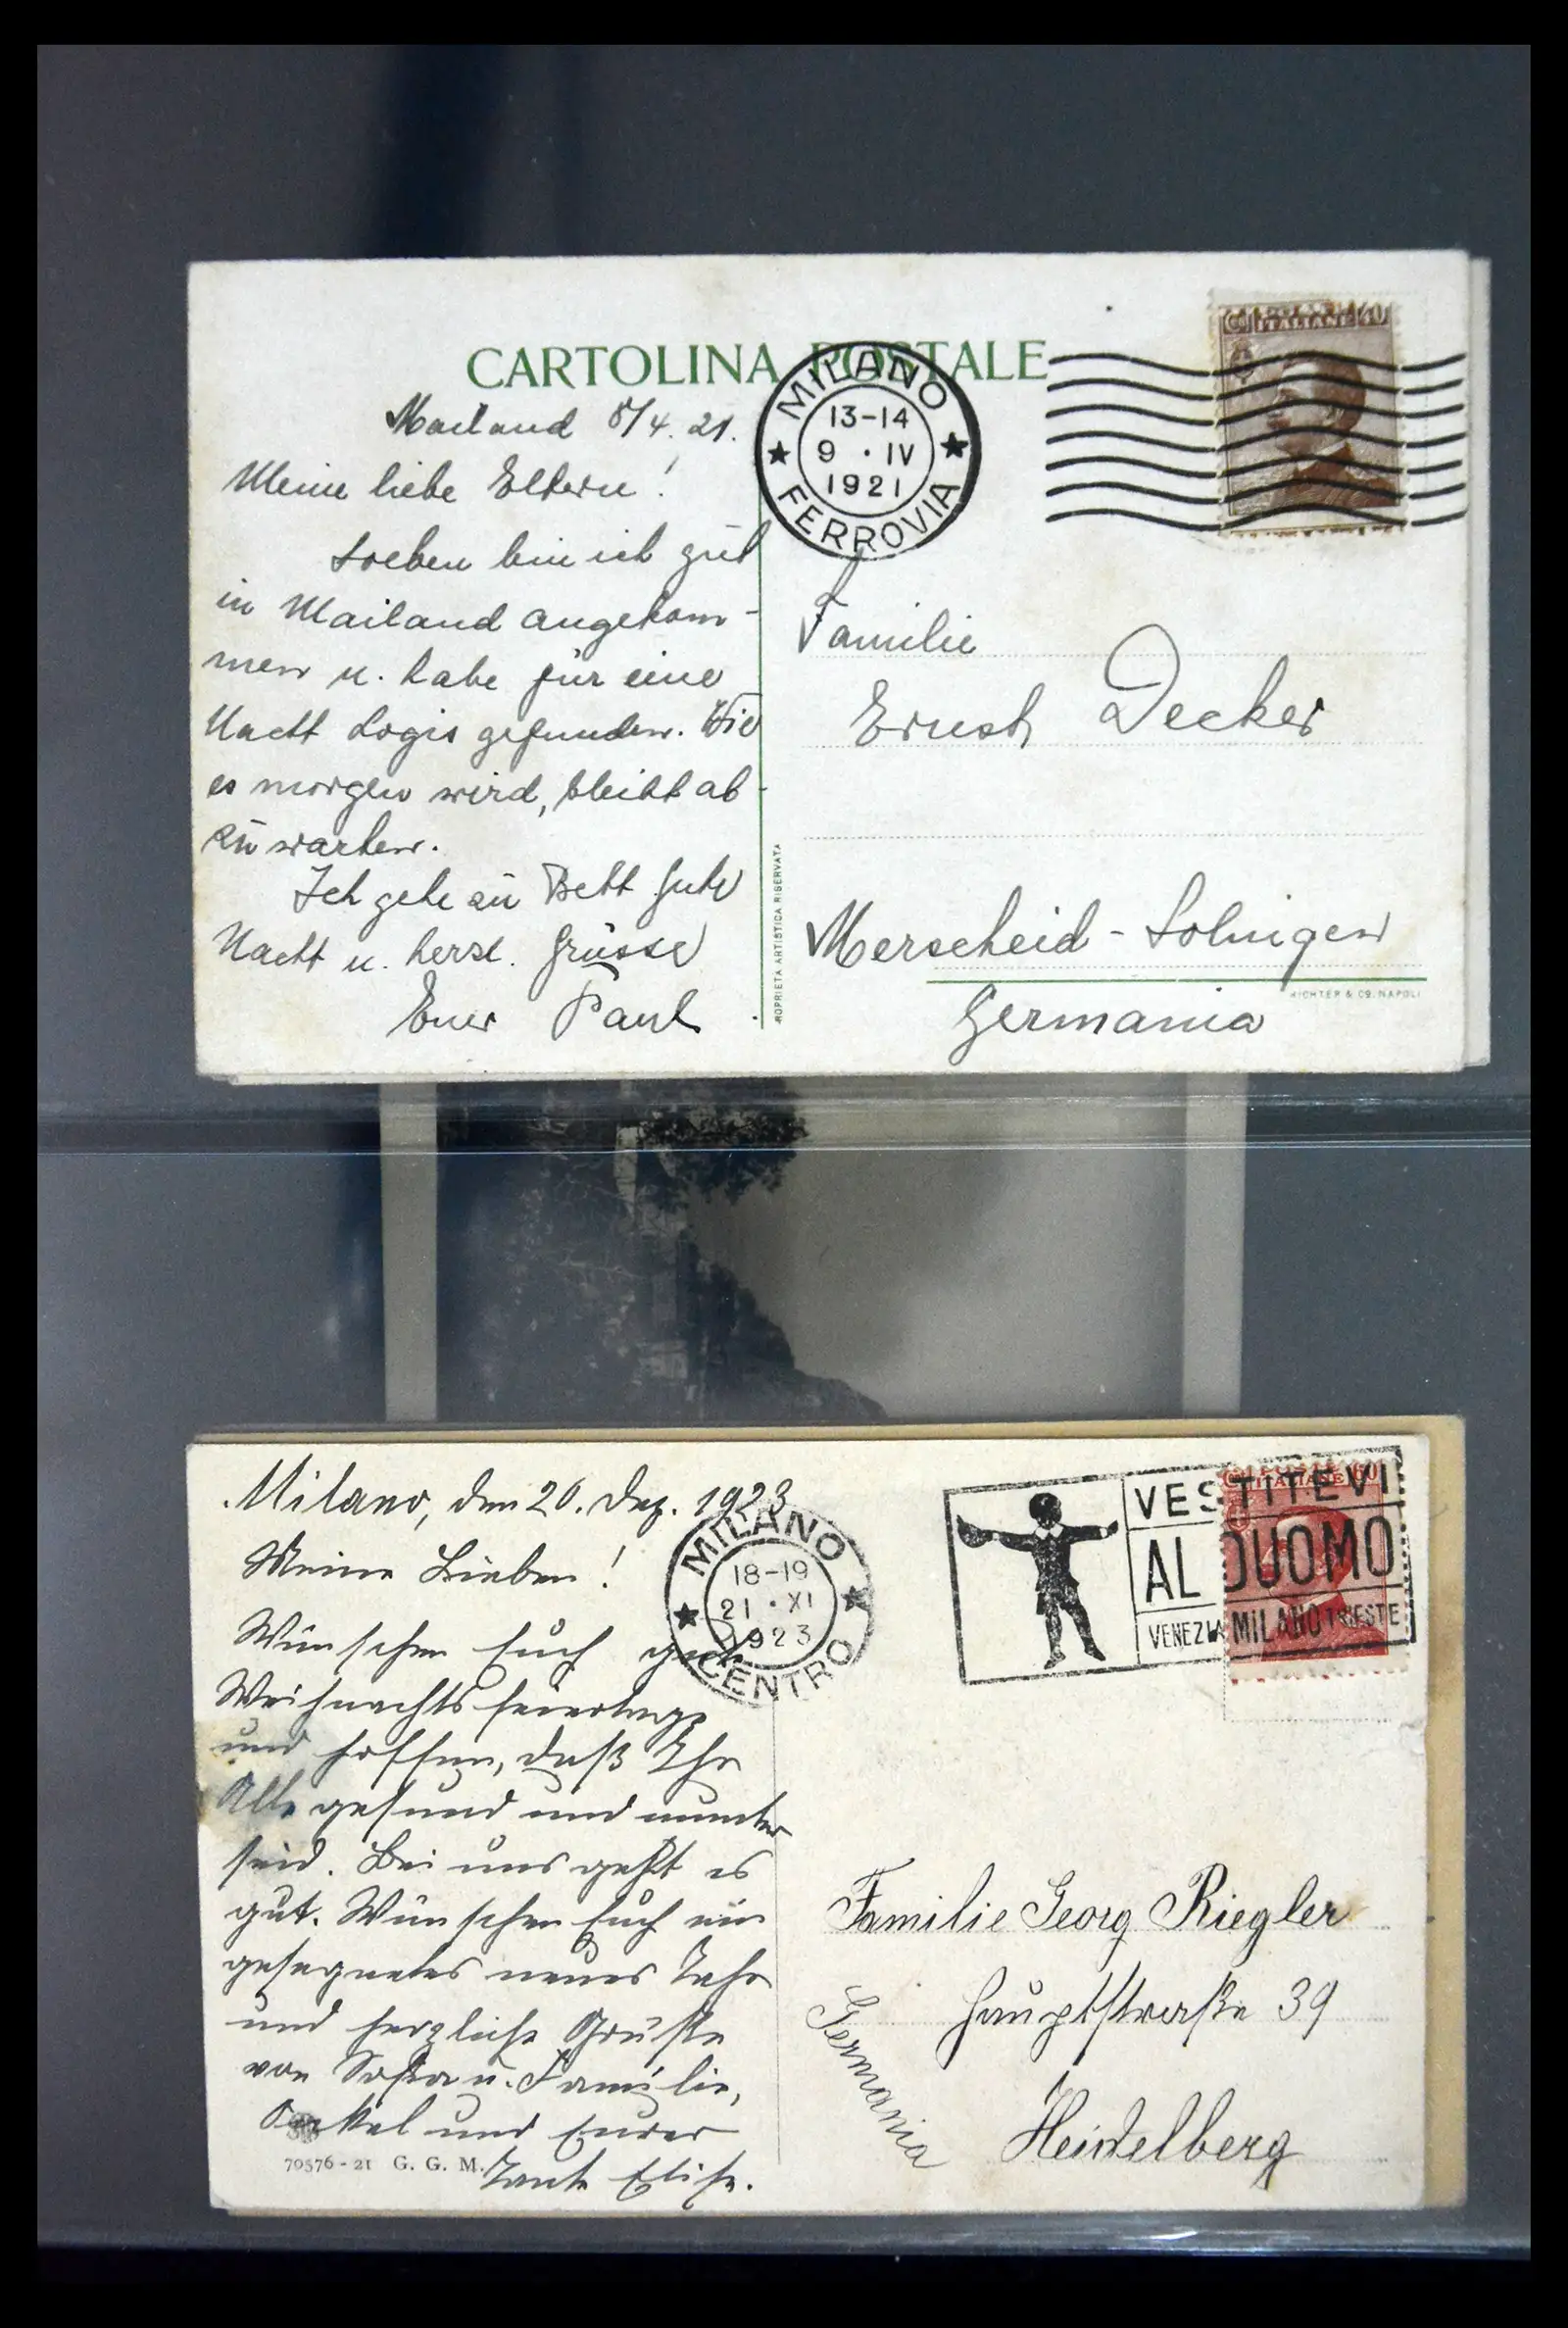 CARTOLINA POSTALE
Mailand 8/4. 21.
Meine liebe Eltern!
Soeben bin ich gut
in Mailand angekom-
men u. habe für eine
Nacht Logis gefunden. Wie
es morgen wird, bleibt ab-
zuwarten.
Ich gehe zu Bett Gute
Nacht u. herzl. Grüsse
Euer Paul
MILANO
13-14
9 · IV
1921
FERROVIA
ITALIANE
Familie
Ernst Decker
Merscheid - Solingen
Germania
ROPRIETA ARTISTICA RISERVATA
RICHTER & Co. NAPOLI
Milano, den 20. Dez. 1923
Meine Lieben!
Wünschen Euch gute
Weihnachtsfeiertage
und hoffen, daß Ihr
Alle gesund und munter
seid. Bei uns geht es
gut. Wünschen Euch ein
gesegnetes neues Jahr
und herzliche Grüße
von u. Familie,
Onkel und Eurer
Tante Elise.
70576 - 21 G. G. M.
MILANO
18-19
21 · XI
1923
CENTRO
VESTITEVI
AL DUOMO
VENEZIA MILANO TRIESTE
ITALIANE 60
Familie Georg Riegler
Hauptstraße 39
Heidelberg
Germania